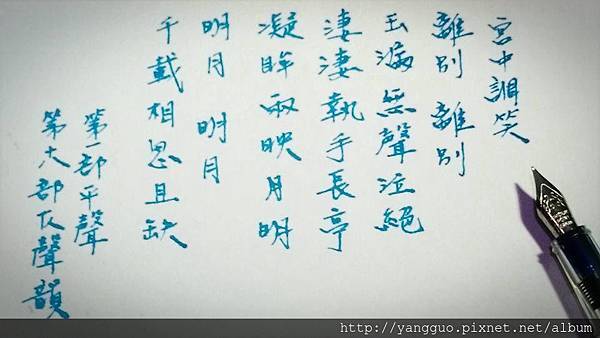 宮中調笑
離別 離別
玉漏無聲泣絕
淒淒執手長亭
凝眸兩映月明
明月 明月
千載相思且缺
第一部平聲
第十八部仄聲韻
http://yangguo.pixnet.net/album